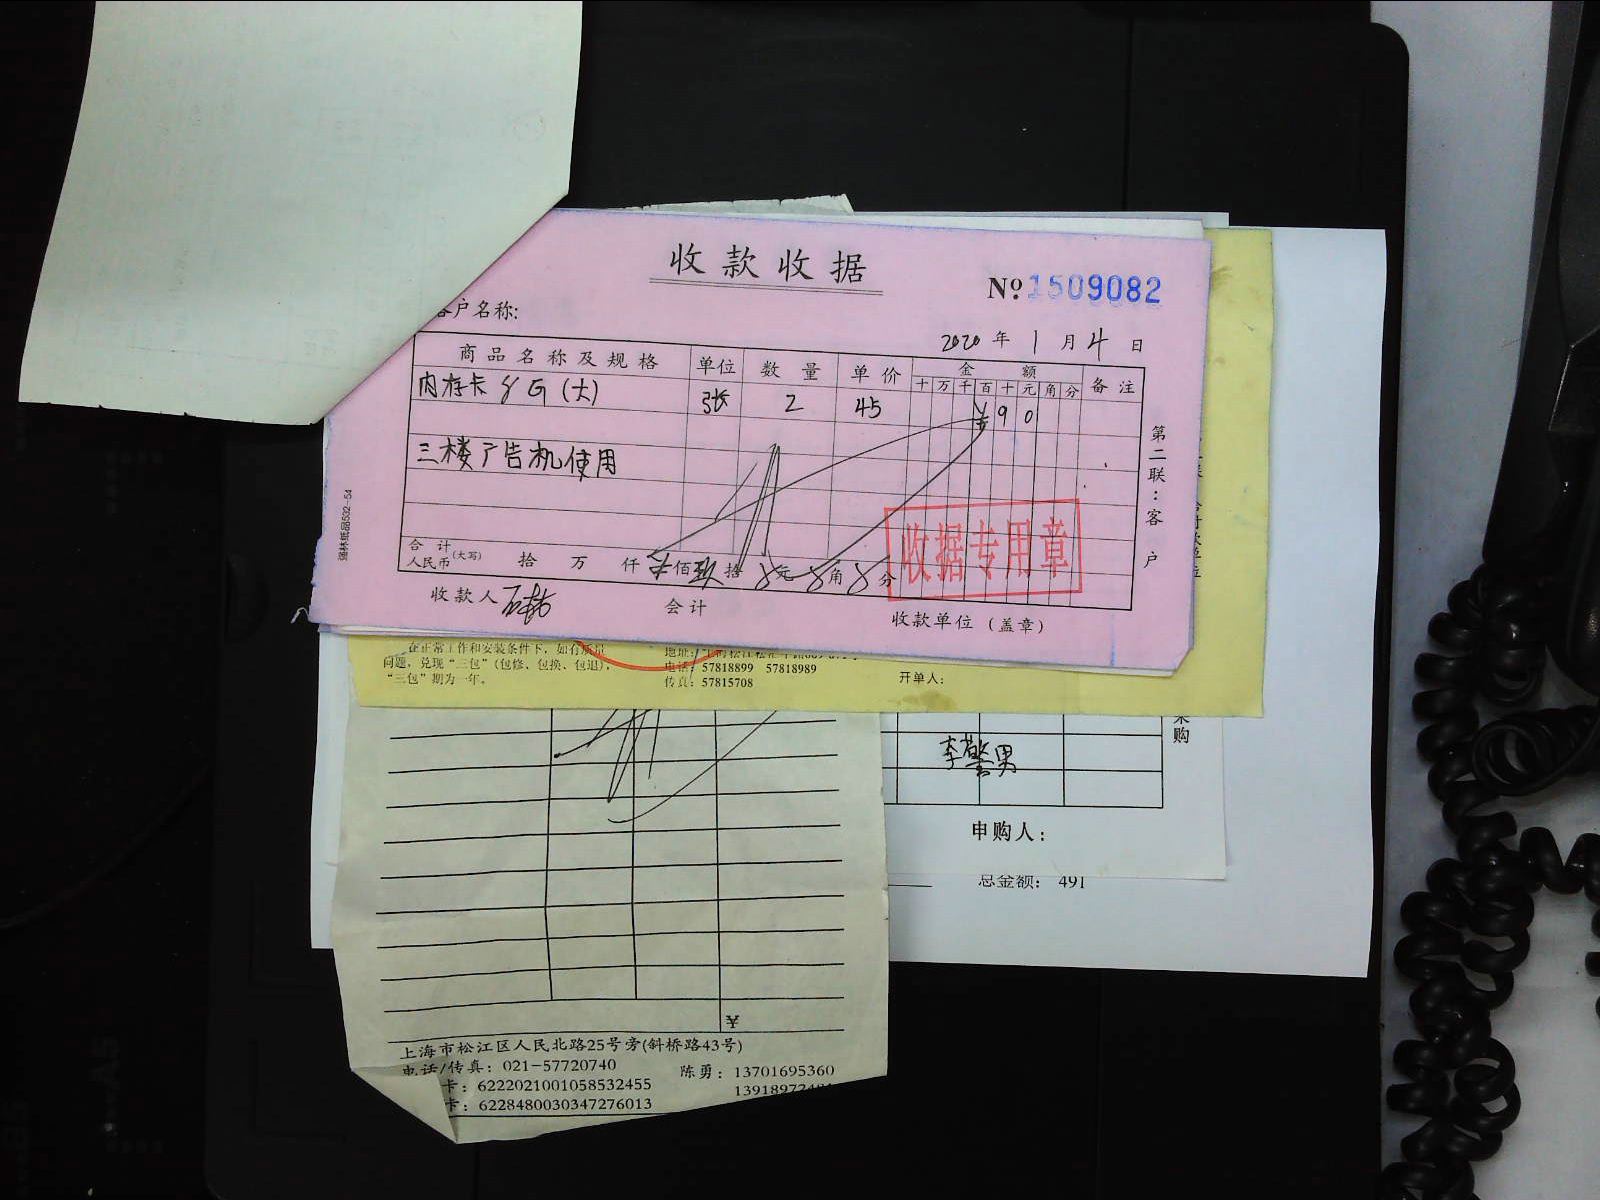 收款收据
№1509082
客户名称:
2020年1月4日
商品名称及规格 单位 数量 单价 金额 备注
十万千百十元角分
内存卡 8G(大) 张 2 45 ¥90
三楼广告机使用
第二联:客户
强林纸品532-54
合计
人民币(大写) 拾 万 仟 佰玖拾 元 角 分
收据专用章
收款人 会计 收款单位(盖章)
在正常工作和安装条件下,如有质量
问题,兑现“三包”(包修、包换、包退),
“三包”期为一年。
地址:
电话:57818899 57818989
传真:57815708
开单人:
采购
李擎男
申购人:
总金额:491
¥
上海市松江区人民北路25号旁(斜桥路43号)
电话/传真:021-57720740 陈勇:13701695360
卡:6222021001058532455
卡:6228480030347276013